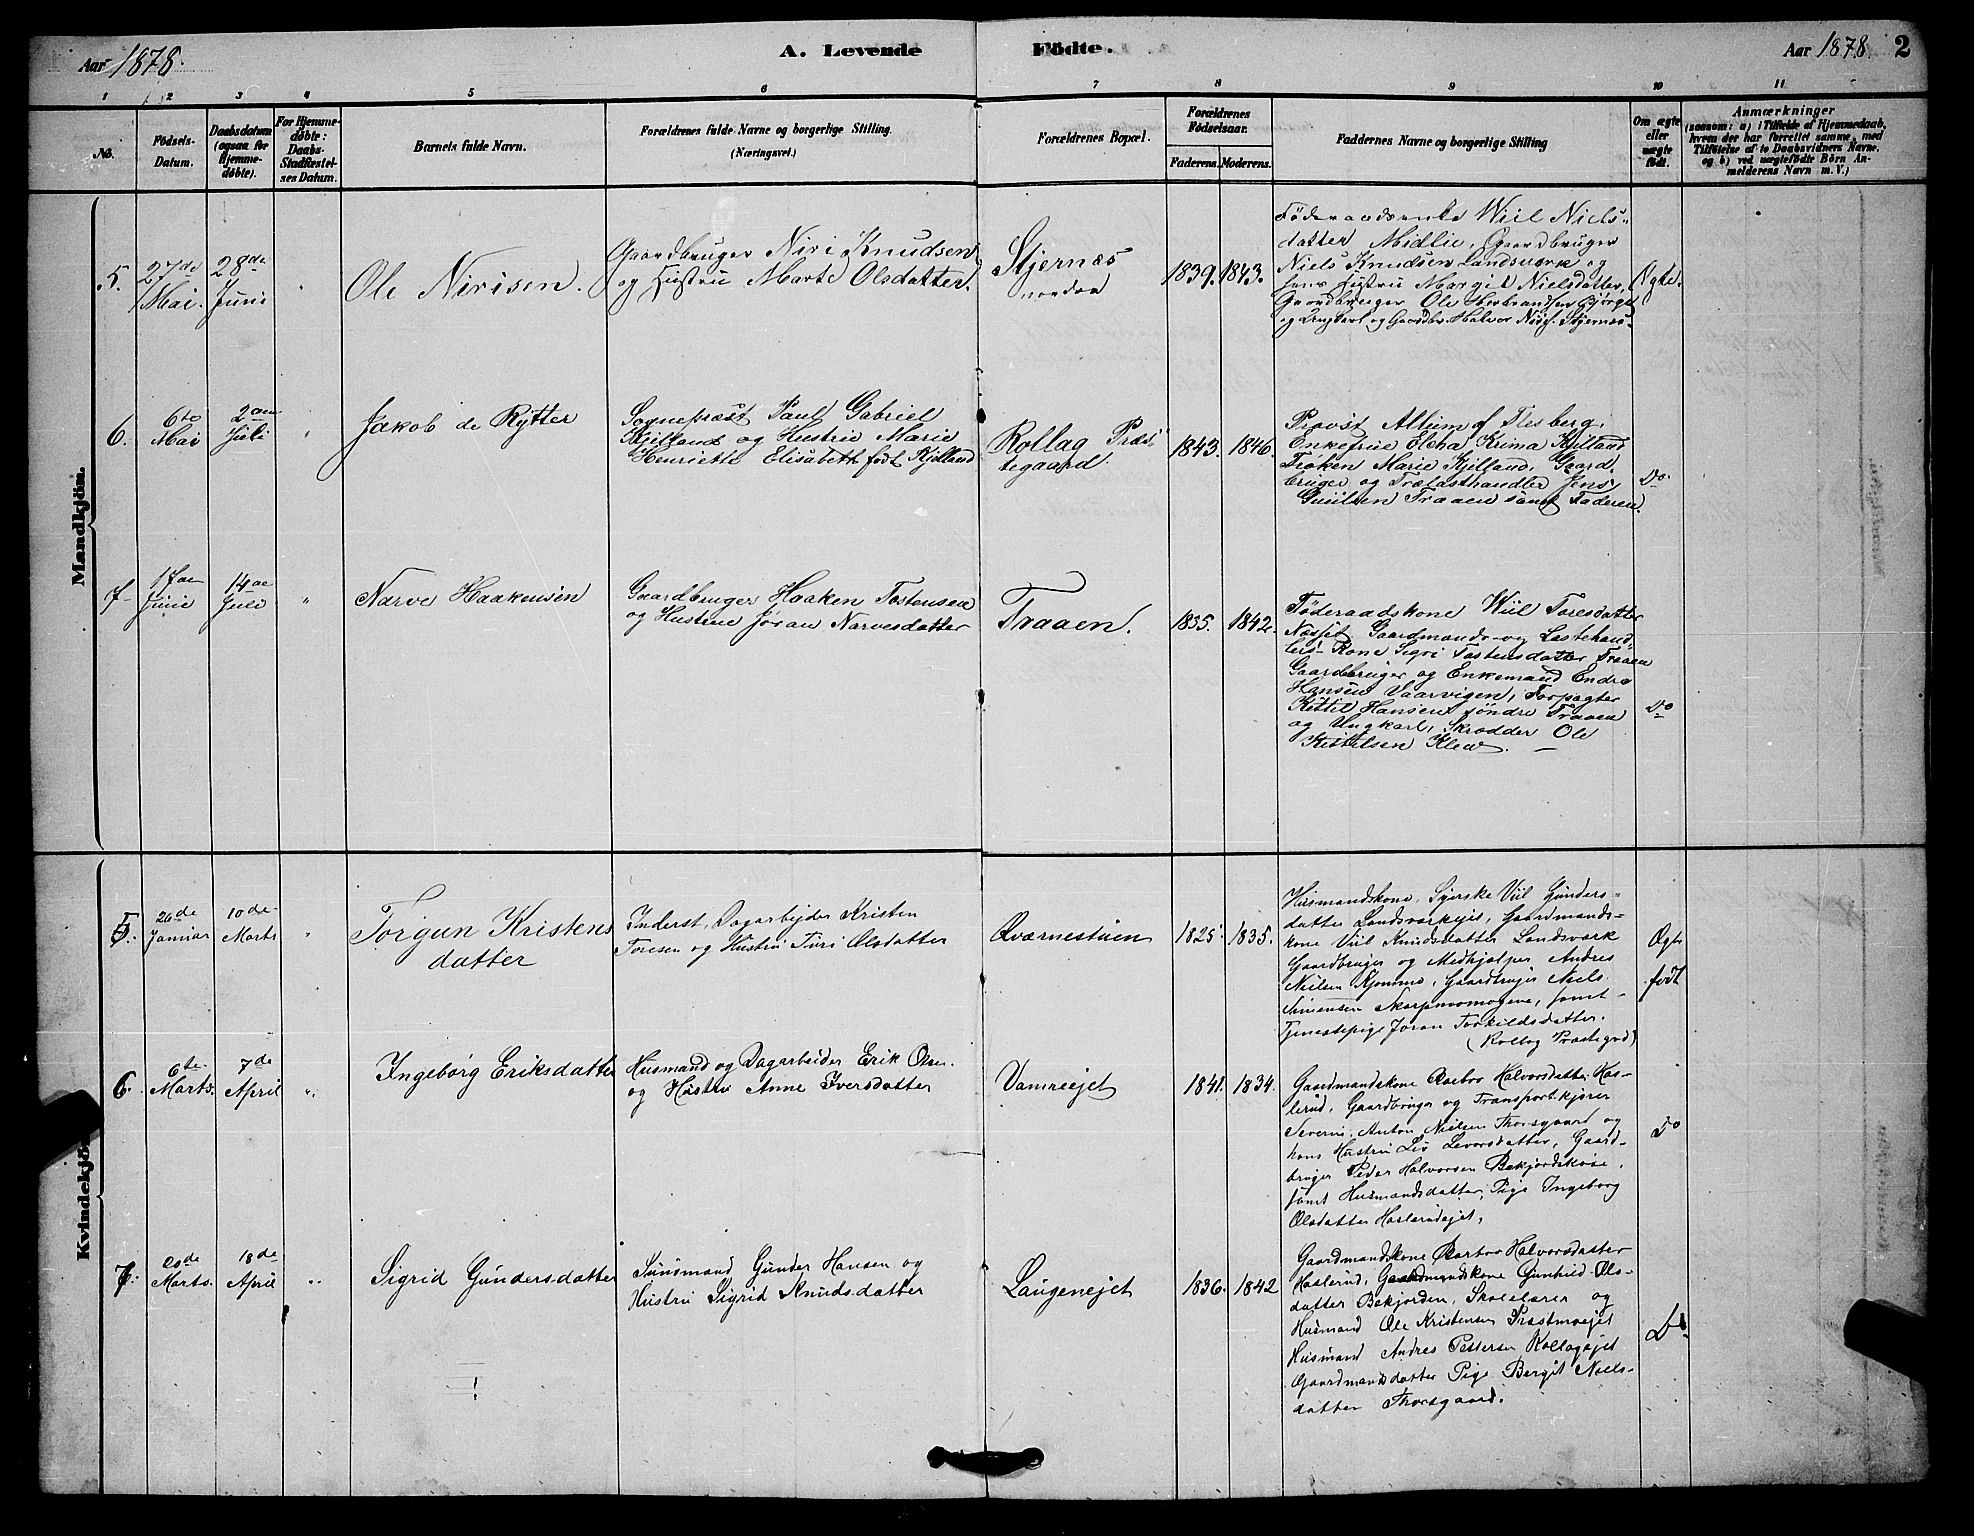 Aar 1878.
A. Levende Födte.
Aar 1878. 2
1 2 3 4 5 6 7 8 9 10 11
No.
Födsels-
Datum.
Daabsdatum
(ogsaa for
Hjemme-
döbte).
For Hjemme-
döbte:
Daabs-
Stadfæstel-
ses Datum.
Barnets fulde Navn.
Forældrenes fulde Navne og borgerlige Stilling.
(Næringsvei.)
Forældrenes Bopæl.
Forældrenes
Födselsaar.
Faderens. Moderens.
Faddernes Navne og borgerlige Stilling
Om ægte
eller
uægte
födt.
Anmærkninger
(saasom: a) i Tilfælde af Hjemmedaab,
hvem der har forrettet samme, med
Tilföielse af to Daabsvidners Navne,
og b) ved uægtefödte Börn An-
melderens Navn m. V.)
Mandkjön.
5.
27de
Mai.
28de
Juni
"
Ole Nirisen.
Gaardbruger Niri Knudsen
og Hustru Marte Olsdatter.
Stjernæs
nordaa
1839. 1843.
Föderaadsenke Wiil Niels-
datter Midlie, Gaardbruger
Niels Knudsen Landsværk og
hans Hustru Margit Nielsdatter,
Gaardbruger Ole Herbrandsen Bjørge
og Ungkarl og Gaardbr. Halvor Niris. Stjernæs.
Ægte.
6.
6te
Mai
2den
Juli
"
Jakob de Rytter
Sognepræst Paul Gabriel
Kjelland og Hustrue Marie
Henriette Elisabeth født Kjelland
Rollag Præs
tegaard.
1843. 1846.
Provst Allum af Flesberg
Enkefrue Kjelland
Frøken Marie Kjelland, Gaard
bruger og Trælasthandler Jens
Guulsen Traaen samt Faderen.
Do.
7
17de
Junie
14de
Jule
"
Narve Haakensen
Gaardbruger Haaken Tostensen
og Hustrue Jøran Narvesdatter
Traaen.
1835. 1842.
Föderaadskone Wiil Toresdatter
Næsset Gaardmands- og Lastehand
lers- Kone Sigri Tostensdatter Traaen
Gaardbruger og Enkemand Endre
Hansen Vaarvigen, Forpagter
Kittil Hansen søndre Traaen
og Ungkarl, Skrædder Ole
Kittilsen Klev.
Do
Kvindekjö
5.
26de
Januar
10de
Marts
"
Torgun Kristens
datter
Inderst, Dagarbejder Kristen
Toresen og Hustru Turi Olsdatter
Qværnestuen
1825. 1835.
Husmandskone, Syerske Viil Gunders-
datter Landsværkejet, Gaardmands-
kone Viil Knudsdatter Landsværk
Gaardbruger og Medhjælper Andres
Nielsen Kjømme, Gaardbruger Niels
Simensen Skarpmomogene, samt
Tjenestepige Joran Torkildsdatter.
(Rollag Præstegrd)
Ægte
født
6.
6te
Marts.
7de
April
"
Ingeborg Eriksdatter
Husmand og Dagarbeider Erik Olsen
og Hustru Anne Iversdatter
Vamreejet
1841. 1834.
Gaardmandskone Aarbro Halvorsdatter Has-
lerud, Gaardbruger og Transportkjører
Severin Anton Nielsen Thorsgaard og
hans Hustru Liv Levorsdatter, Gaard-
bruger Peder Halvorsen Bekjordskase,
samt Husmandsdatter, Pige Ingeborg
Olsdatter Haslerudejet.
Do
7.
20de
Marts.
18de
April
"
Sigrid Gundersdatter
Husmand Gunder Hansen og
Hustru Sigrid Knudsdatter
Laugenejet
1836. 1842
Gaardmandskone Aarbro Halvorsdatter
Haslerud, Gaardmandskone Gunhild Ols-
datter Bekjorden, Skolelærer og
Husmand Ole Kristensen Præstmoejet
Husmand Andres Pettersen Rollagejet
Gaardmandsdatter Pige Bergit Niels-
datter Thorsgaard.
Do